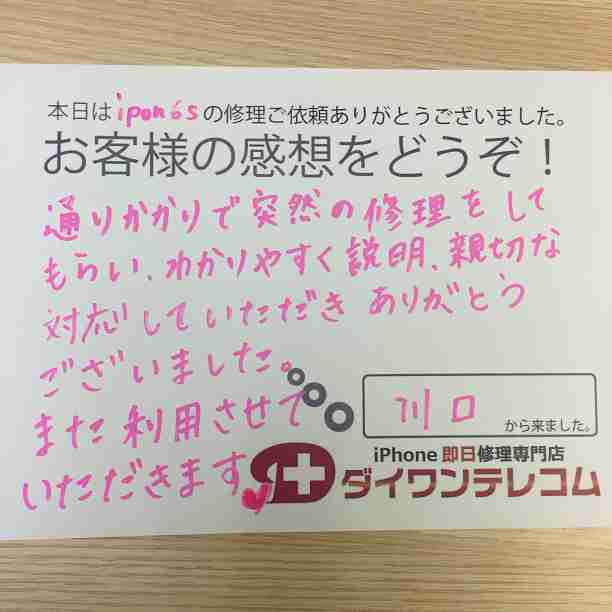 本日はipon6sの修理ご依頼ありがとうございました。
お客様の感想をどうぞ！
通りかかりで突然の修理をして
もらい、わかりやすく説明、親切な
対応していただきありがとう
ございました。
また利用させて
いただきます
川口
から来ました。
iPhone 即日修理専門店
ダイワンテレコム